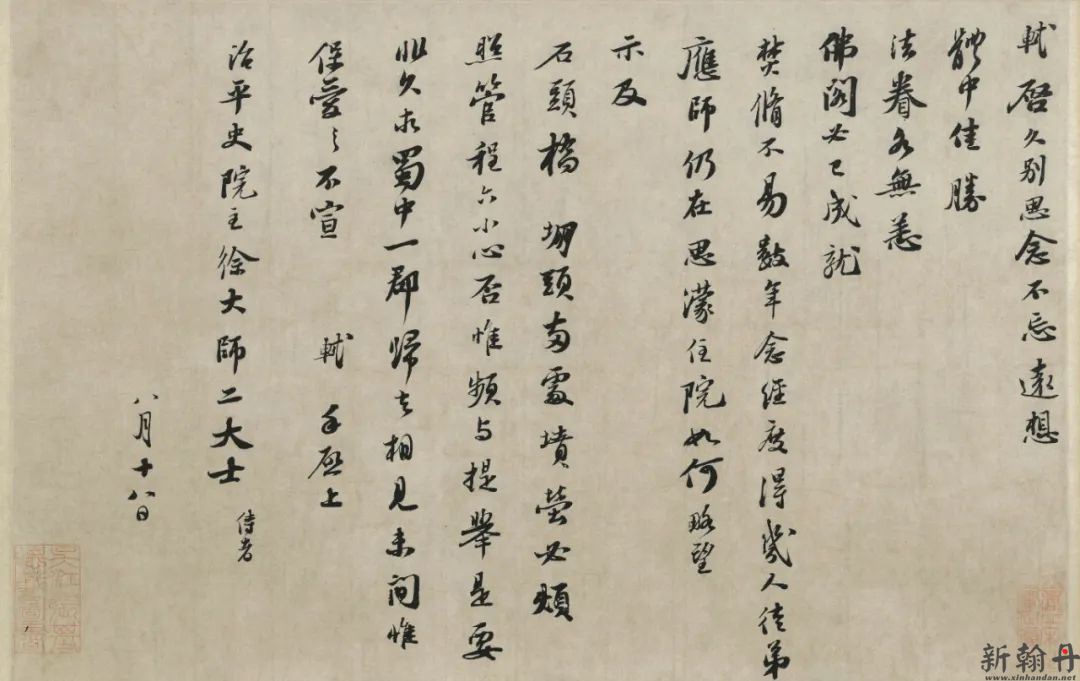 軾啓久别思念不忘遠想
體中佳勝
法眷各無恙
佛閣必已成就
焚脩不易數年念經度得幾人徒弟
應師仍在思濛住院如何略望
示及
石頭橋 堋頭兩處墳塋必煩
照管程六小心否惟頻与提舉是要
非久求蜀中一郡歸去相見未間惟
保愛之不宣 軾 手啓上
治平史院主徐大師二大士 侍者
八月十八日
新翰丹
www.xinhandan.net